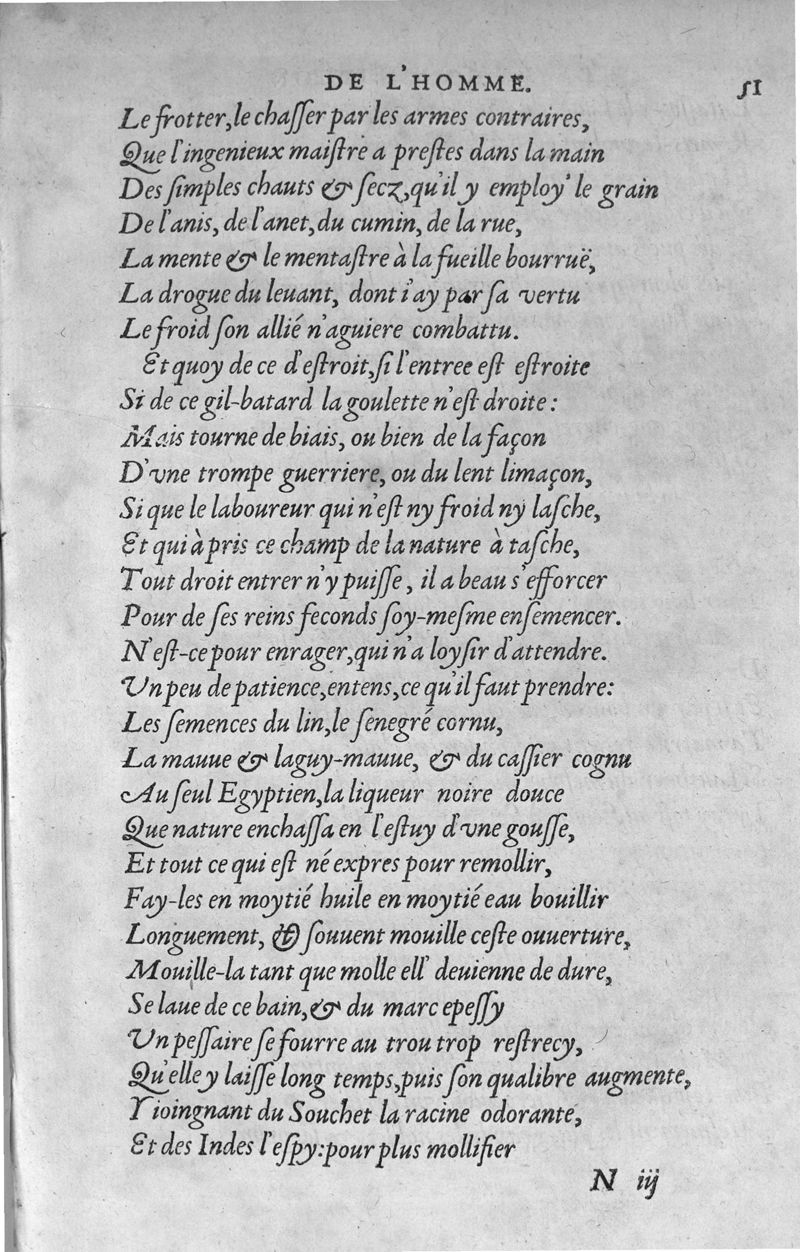 DE L'HOMME. 51
Le frotter, le chaſſer par les armes contraires,
Que l'ingenieux maiſtre a preſtes dans la main
Des ſimples chauts & ſecz, qu'il y employ' le grain
De l'anis, de l'anet, du cumin, de la rue,
La mente & le mentaſtre à la fueille bourruë,
La drogue du leuant, dont i'ay par ſa vertu
Le froid ſon allié n'aguiere combattu.
Et quoy de ce d'eſtroit, ſi l'entree eſt eſtroite
Si de ce gil-batard la goulette n'eſt droite :
Mais tourne de biais, ou bien de la façon
D'vne trompe guerriere, ou du lent limaçon,
Si que le laboureur qui n'eſt ny froid ny laſche,
Et qui à pris ce champ de la nature à taſche,
Tout droit entrer n'y puiſſe, il a beau s'efforcer
Pour de ſes reins feconds ſoy-meſme enſemencer.
N'eſt-ce pour enrager, qui n'a loyſir d'attendre.
Vn peu de patience, entens, ce qu'il faut prendre:
Les ſemences du lin, le ſenegré cornu,
La mauue & laguy-mauue, & du caſſier cognu
Au ſeul Egyptien, la liqueur noire douce
Que nature enchaſſa en l'eſtuy d'vne gouſſe,
Et tout ce qui eſt né expres pour remollir,
Fay-les en moytié huile en moytié eau bouillir
Longuement, & ſouuent mouille ceſte ouuerture,
Mouille-la tant que molle ell' deuienne de dure,
Se laue de ce bain, & du marc epeſſy
Vn peſſaire ſe fourre au trou trop reſtrecy,
Qu'elle y laiſſe long temps, puis ſon qualibre augmente,
Y ioingnant du Souchet la racine odorante,
Et des Indes l'eſpy: pour plus mollifier
N iij